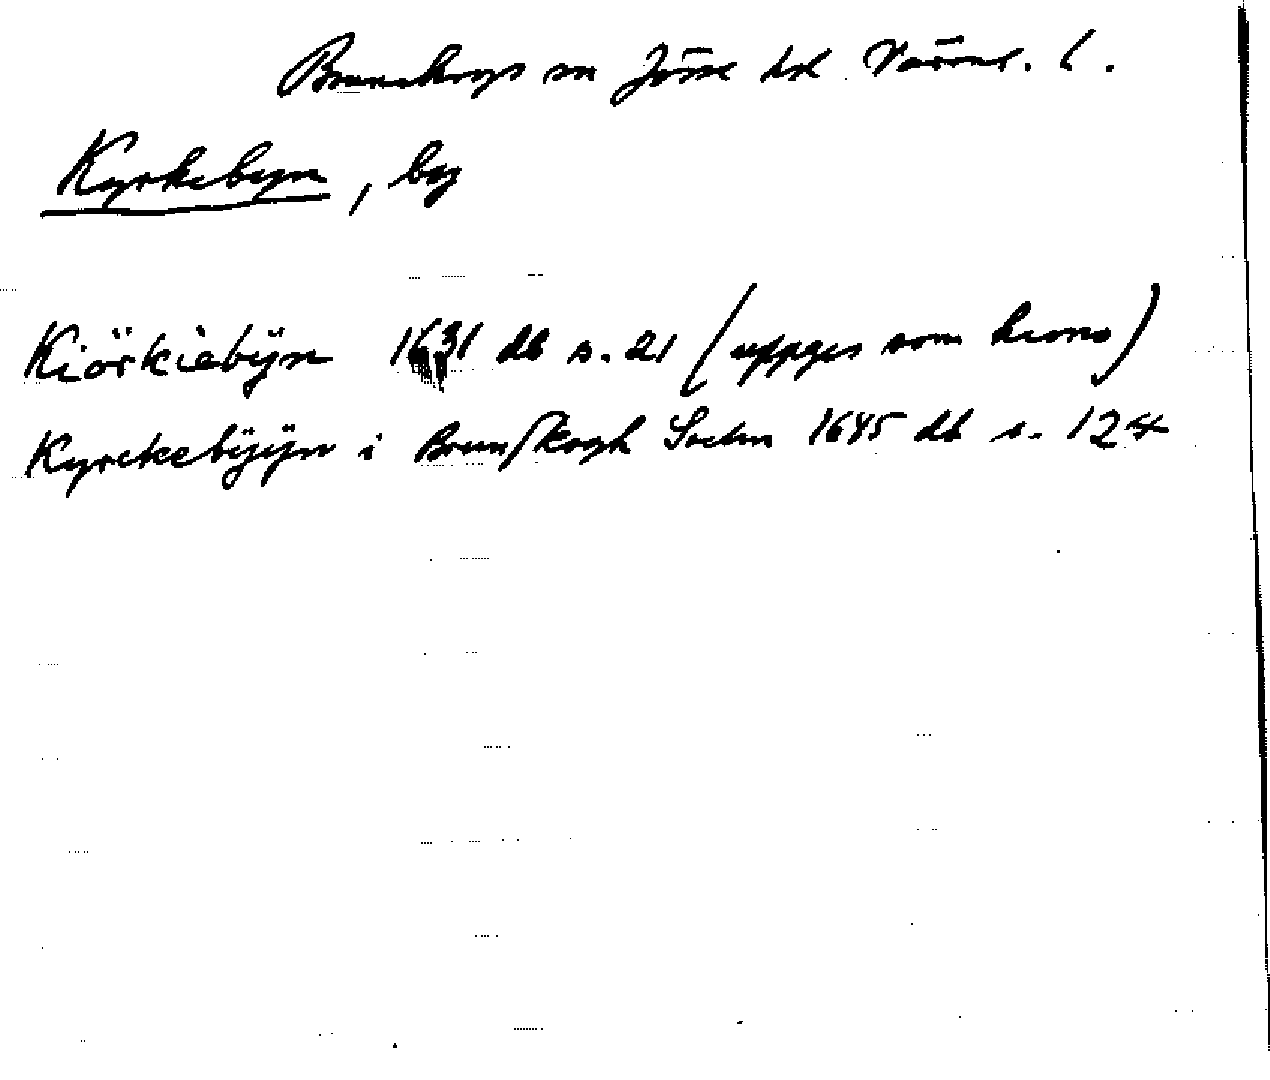 Brunskogs sn Jösse hd Värml. l.
Kyrkebyn, by
Kiörkiebÿn 1631 db s. 21 (uppges som krono)
Kyrckebÿÿn i Brunskogh Sochn 1645 db s. 124